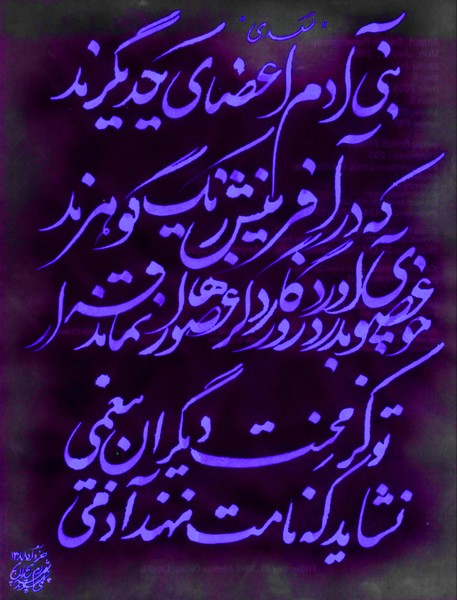 سعدی
بنی آدم اعضای یکدیگرند
که در آفرینش ز یک گوهرند
چو عضوی بدرد آورد روزگار دگر عضوها را نماند قرار
تو کز محنت دیگران بی غمی
نشاید که نامت نهند آدمی